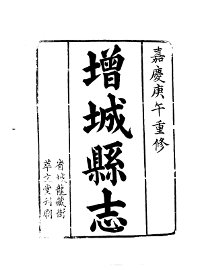 嘉慶庚午重修
增城縣志
省城蔭藏街
萃文堂刊刷